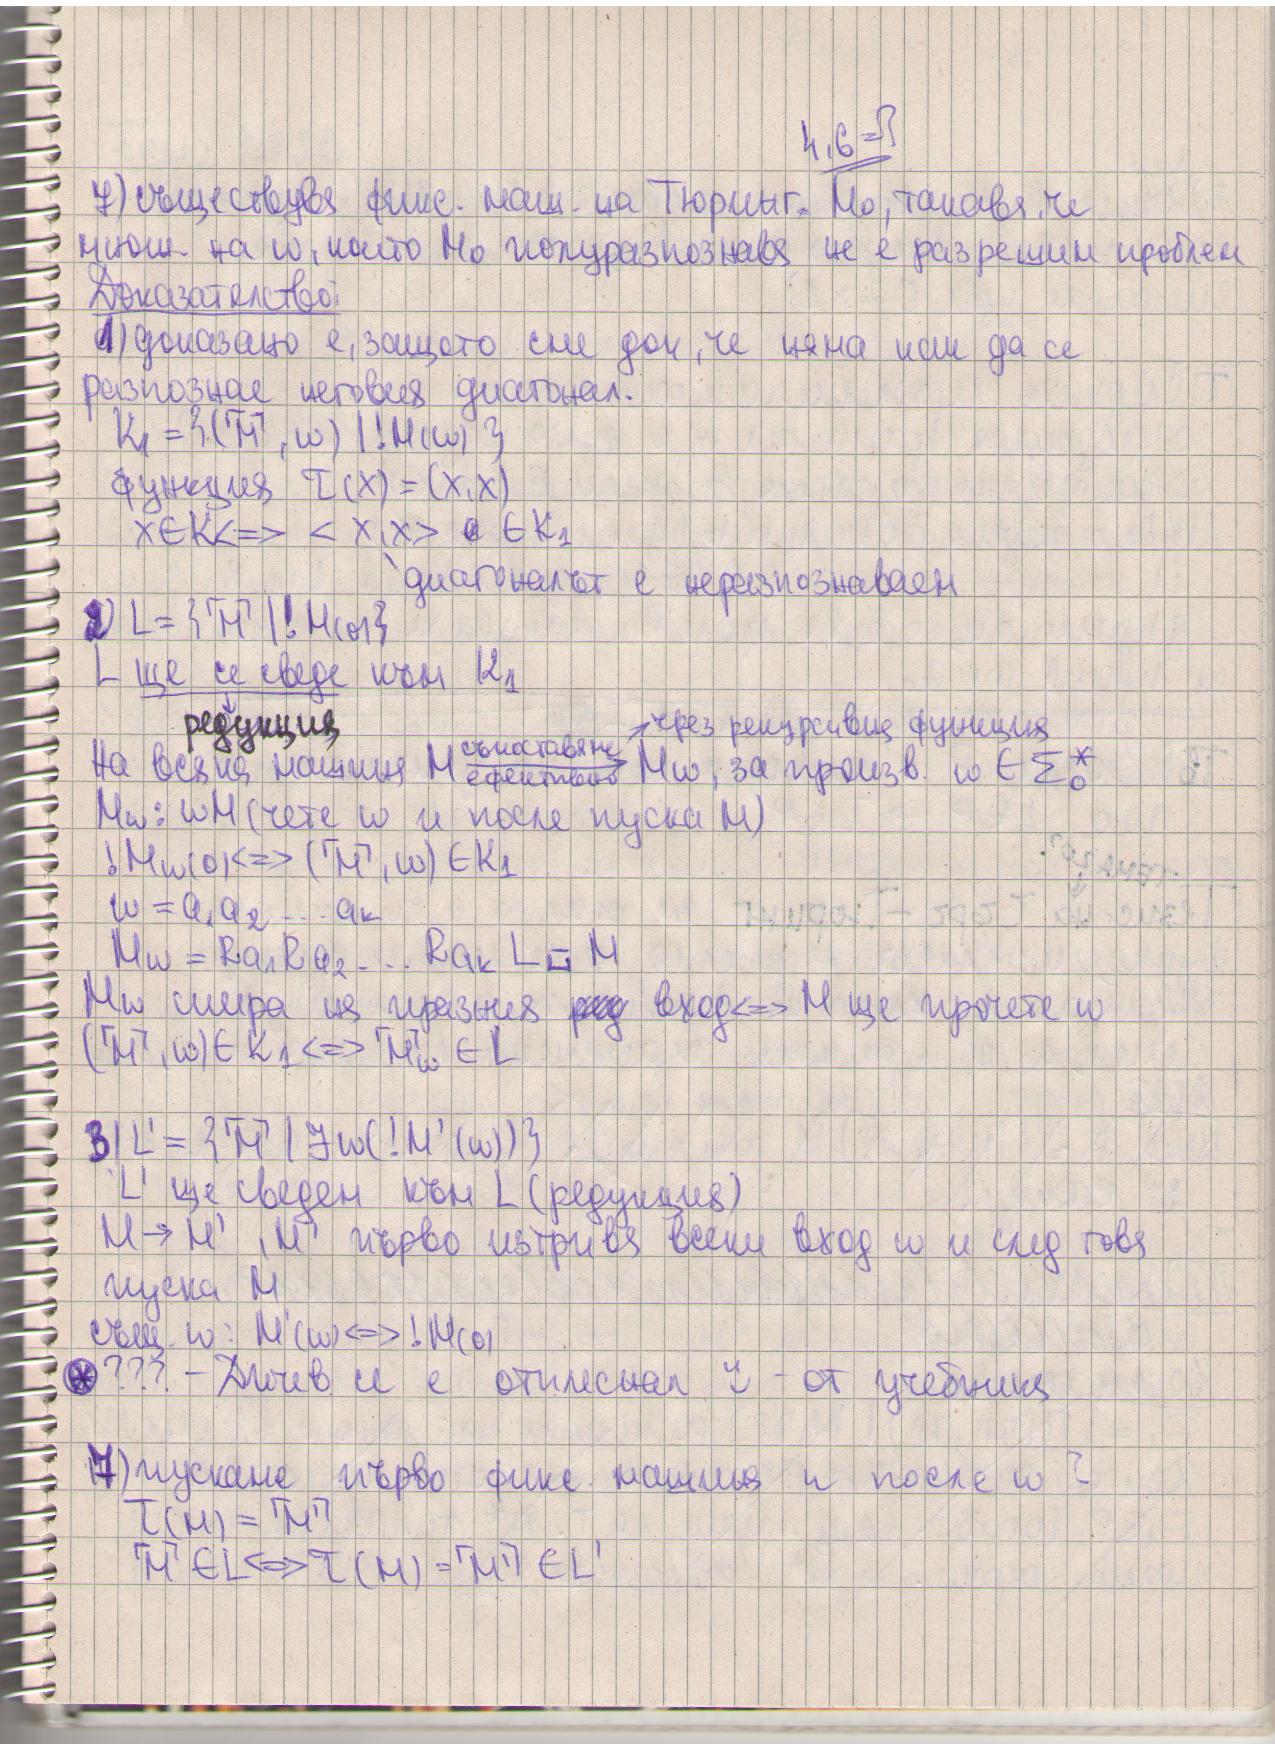 4,6=?
7) съществува фикс. маш. на Тюринг. M₀, такава, че
множ. на w, които M₀ полуразпознава не е разрешим проблем
Доказателство:
1) доказано е, защото сме док, че няма как да се
разпознае неговия диагонал.
K₁ = {("M", w) | !M(w)}
функция τ(x) = (x,x)
x∈K<=> <x,x> ∈K₁
диагоналът е неразпознаваем
2) L = {"M" | !M(o)}
L ще се сведе към K₁
редукция
чрез рекурсивна функция
на всяка машина M съпоставяне ефективно → Mw, за произв. w ∈ Σ₀*
Mw: wM (чете w и после пуска M)
!Mw(o)<=> ("M", w) ∈K₁
w = a₁a₂ ... aₖ
Mw = Ra₁Ra₂ ... Raₖ L⊔ M
Mw спира на празния вход<=> M ще прочете w
("M", w)∈K₁<=> "M"w ∈ L
3) L' = {"M" | ∃w(!M'(w))}
L' ще сведен към L (редукция)
M → M', M' първо изтрива всеки вход w и след това
пуска M
същ. w: M'(w)<=> !M(o)
⊛ ??? – Дичев се е отплеснал – от учебника
7) пускане първо фикс. машина и после w ?
τ(M) = "M'"
"M" ∈L<=> τ(M) = "M'" ∈L'